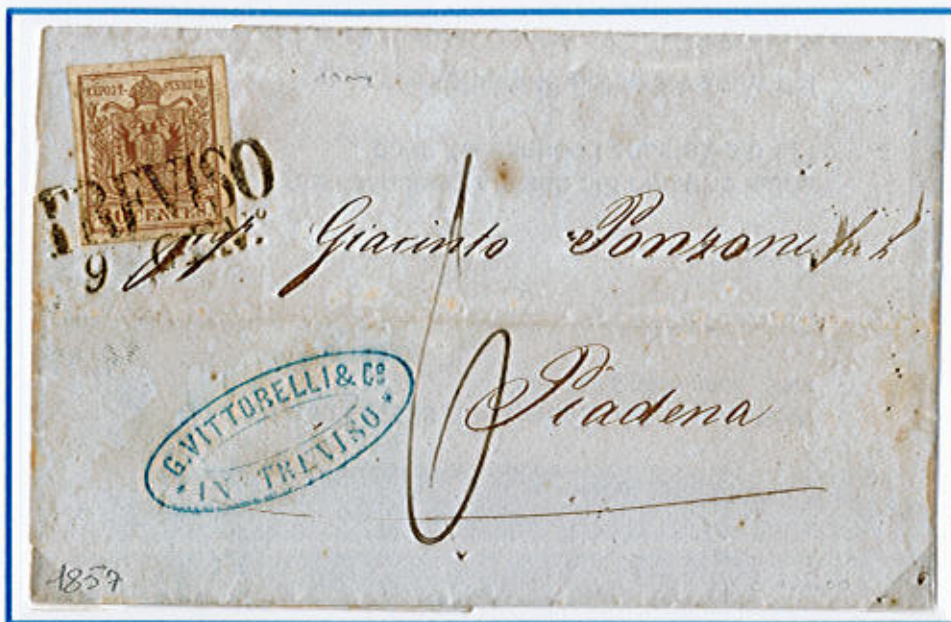 TREVISO
CENTES
9
Giacinto Ponzoni
Piadena
6
G. VITTORELLI & Cº
IN TREVISO
1857